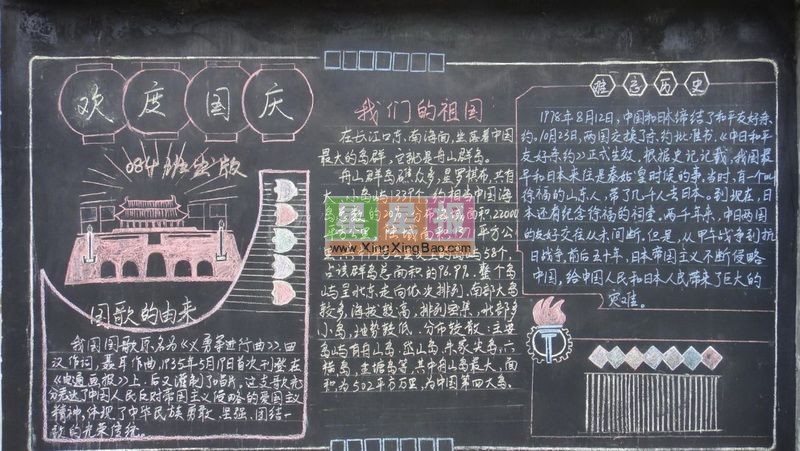 欢度国庆
084班 版
国歌的由来
我国国歌原名为《义勇军进行曲》,田
汉作词,聂耳作曲,1935年5月 日首次刊登在
《电通画报》上,后又灌制了唱片,这支歌充
分表达了中国人民反对帝国主义侵略的爱国主义
精神,体现了中华民族勇敢、坚强、团结一
致的光荣传统。
我们的祖国:
在长江口东,南海面,坐落着中国
最大的岛群,它就是舟山群岛。
舟山群岛 众多,星罗棋布,共有
相当中国海
分布 面积22000
平方公
58个,
占该群岛总面积的96.9%。整个岛
屿呈北东走向依次排列,南部大岛
较多,海拔较高,排列密集,北部多
小岛,地势较低,分布较散;主要
岛屿有舟山岛、岱山岛、朱家尖岛、六
横岛、金塘岛等,其中舟山岛最大,面
积为502平方万里,为中国第四大岛。
难忘历史
1978年8月12日,中国和日本缔结了和平友好条
约。10月23日,两国交换了条约批准书,《中日和平
友好条约》正式生效。根据史记记载,我国最
早和日本来往是秦始皇时候的事,当时,有一个叫
徐福的山东人,带了几千人去日本。到现在,日
本还有纪念徐福的祠堂。两千年来,中日两国
的友好交往从未间断。但是,从甲午战争到抗
日战争,前后五十年,日本帝国主义不断侵略
中国,给中国人民和日本人民带来了巨大的
灾难。
黑板报
www.XingXingBao.com